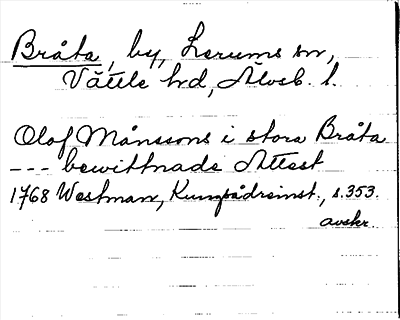 Bråta, by, Lerums sn,
Vättle hd, Älvsb. l.
Olof Månssons i stora Bråta
--- bewittnade Attest
1768 Westman, Kungsådreinst., s. 353.
avskr.